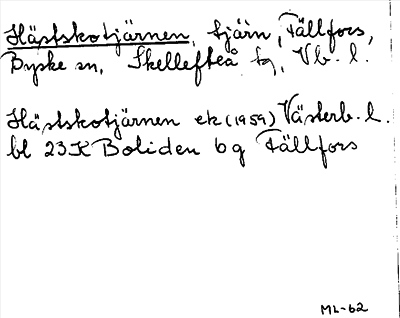 Hästskotjärnen, tjärn, Fällfors,
Byske sn, Skellefteå tg, Vb. l.
Hästskotjärnen ek (1959) Västerb. l.
bl 23K Boliden b g Fällfors
ML-62